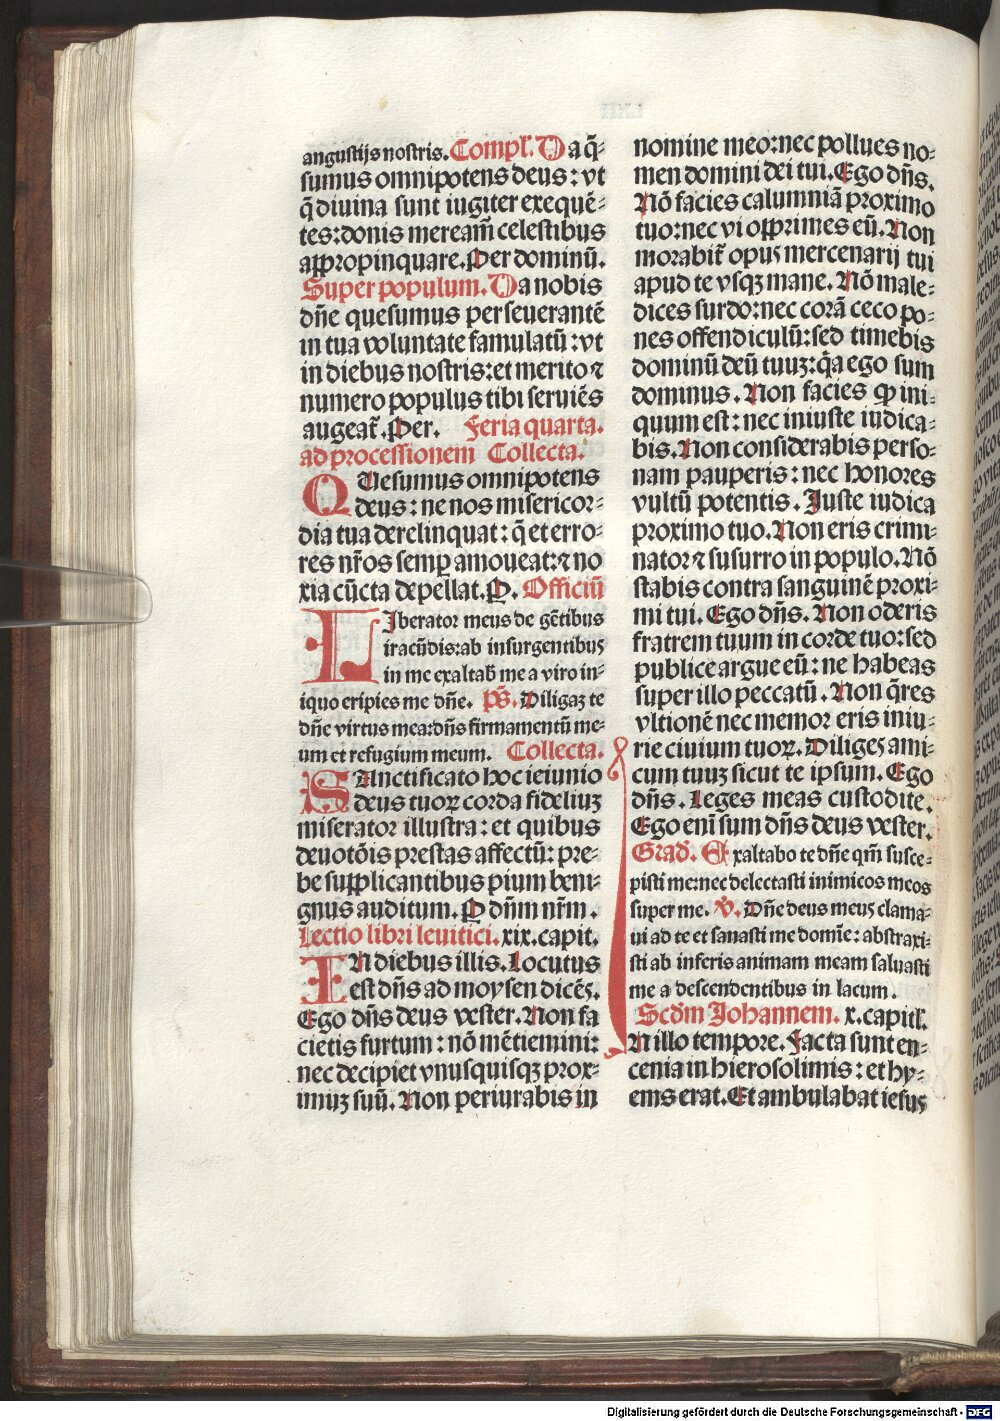 angustijs nostris. Compl'. Da q̄-
sumus omnipotens deus: vt
q̄ diuina sunt iugiter exequē-
tes: donis meream̄ celestibus
appropinquare. Per dominū.
Super populum. Da nobis
dn̄e quesumus perseuerantē
in tua voluntate famulatū: vt
in diebus nostris: et merito ⁊
numero populus tibi seruiēs
augeat̄. Per. Feria quarta.
ad processionem Collecta.
QUesumus omnipotens
deus: ne nos misericor-
dia tua derelinquat: q̄ et erro-
res nr̄os semꝑ amoueat: ⁊ no
xia cūcta depellat. P. Officiū
LIberator meus de gētibus
iracūdis: ab insurgentibus
in me exaltab̄ me a viro in-
iquo eripies me dn̄e. ps̄. Diligaꝫ te
dn̄e virtus mea: dn̄s firmamentū me-
um et refugium meum. Collecta.
SAnctificato hoc ieiunio
deus tuoꝝ corda fideliuꝫ
miserator illustra: et quibus
deuotōis prestas affectū: pre-
be supplicantibus pium beni-
gnus auditum. P dn̄m nr̄m.
Lectio libri leuitici. xix. capit.
IN diebus illis. Locutus
est dn̄s ad moysen dicēs.
Ego dn̄s deus vester. Non fa
cietis furtum: nō mētiemini:
nec decipiet vnusquisqꝫ prox-
imuꝫ suū. Non periurabis in
nomine meo: nec pollues no-
men domini dei tui. Ego dn̄s.
Nō facies calumniā proximo
tuo: nec vi opprimes eū. Non
morabit̄ opus mercenarij tui
apud te vsqꝫ mane. Nō male-
dices surdo: nec corā ceco po-
nes offendiculū: sed timebis
dominū deū tuuꝫ: q̄a ego sum
dominus. Non facies ꝙ ini-
quum est: nec iniuste iudica-
bis. Non considerabis perso-
nam pauperis: nec honores
vultū potentis. Juste iudica
proximo tuo. Non eris crimi-
nator ⁊ susurro in populo. Nō
stabis contra sanguinē proxi-
mi tui. Ego dn̄s. Non oderis
fratrem tuum in corde tuo: sed
publice argue eū: ne habeas
super illo peccatū. Non q̄res
vltionē nec memor eris iniu-
rie ciuium tuoꝝ. Diliges ami-
cum tuuꝫ sicut te ipsum. Ego
dn̄s. Leges meas custodite.
Ego enī sum dn̄s deus vester.
Grad̄. Exaltabo te dn̄e qm̄ susce-
pisti me: nec delectasti inimicos meos
super me. v̄. Dn̄e deus meus clama-
ui ad te et sanasti me domīe: abstraxi-
sti ab inferis animam meam saluasti
me a descendentibus in lacum.
Scd̄m Johannem. x. capitl'.
IN illo tempore. Facta sunt en-
cenia in hierosolimis: et hy-
ems erat. Et ambulabat iesus
Digitalisierung gefördert durch die Deutsche Forschungsgemeinschaft - DFG